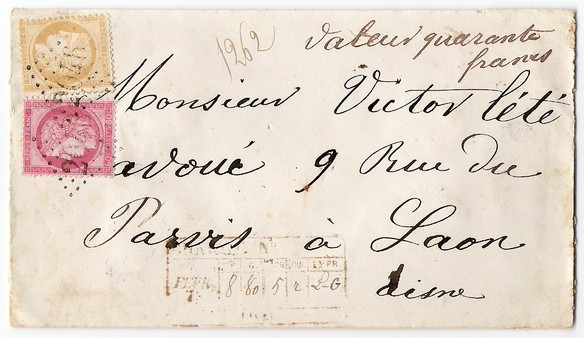 1262
Valeur quarante
francs
Monsieur Victor Lété
avoué 9 Rue du
Parvis à Laon
Aisne
8 80 5